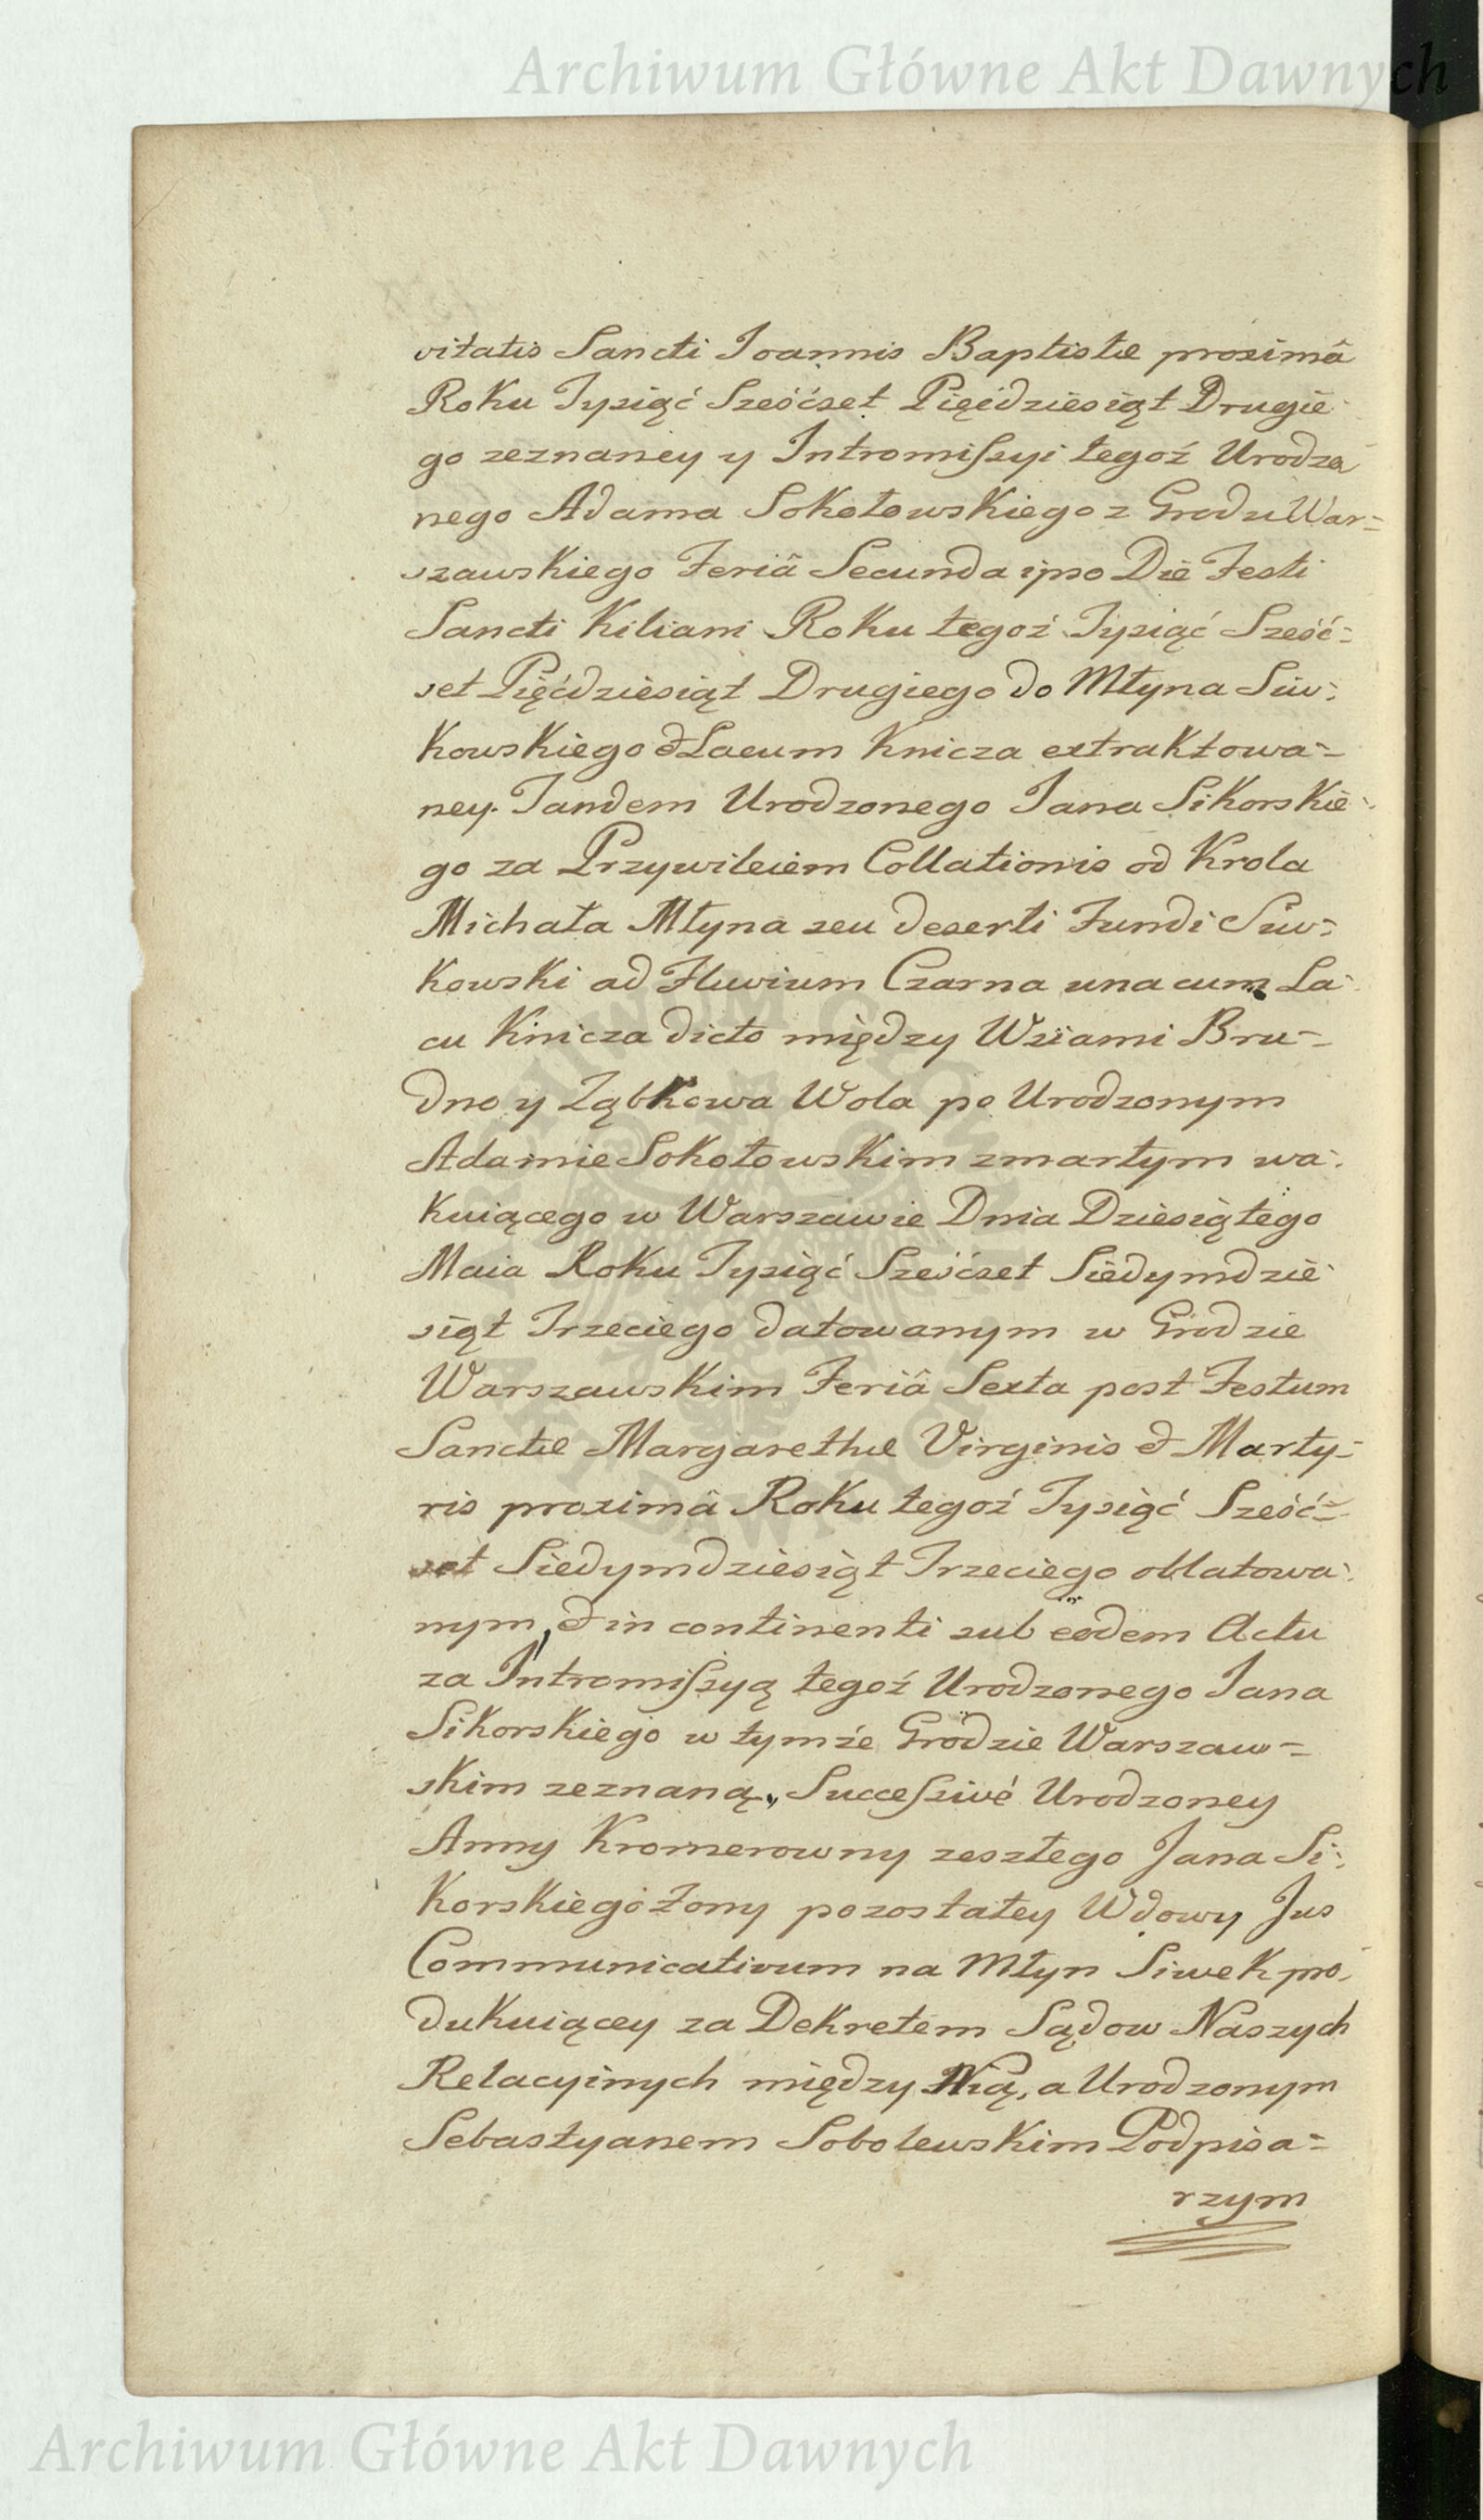 Archiwum Główne Akt Dawnych
vitatis Sancti Joannis Baptistæ proximâ
Roku Tysiąć Sześćset Pięćdziesiąt Drugie-
go zeznaney y Intromissyi tegoż Urodzo
nego Adama Sokołowskiego z Grodu War=
szawskiego Feriâ Secunda ipso Die Festi
Sancti Kiliani Roku tegoż Tysiąć Sześć=
set Pięćdziesiąt Drugiego do Młyna Siw=
kowskiego & Lacum Knicza extraktowa=
ney. Tandem Urodzonego Jana Sikorskie=
go za Przywileiem Collationis od Krola
Michała Młyna seu deserti Fundi Siw=
kowski ad Fluvium Czarna una cum La-
cu Kinicza dicto między Wsiami Bru=
dno y Ząbkowa Wola po Urodzonym
Adamie Sokołowskim zmarłym wa-
kuiącego w Warszawie Dnia Dziesiątego
Maia Roku Tysiąć Sześćset Siedymdzie-
siąt Trzeciego datowanym w Grodzie
Warszawskim Feriâ Sexta post Festum
Sanctæ Margarethæ Virginis & Marty-
ris proximâ Roku tegoż Tysiąć Sześć=
set Siedymdziesiąt Trzeciego oblatowa-
nym, & in continenti sub eodem Actu
za Intromissyą tegoż Urodzonego Jana
Sikorskiego w tymże Grodzie Warszaw=
skim zeznaną, Successivé Urodzoney
Anny Kromerowny zeszłego Jana Si=
korskiego Żony pozostałey Wdowy Jus
Communicativum na Młyn Siwek pro-
dukuiącey za Dekretem Sądow Naszych
Relacyinych między Nią, a Urodzonym
Sebastyanem Sobolewskim Podpisa=
rzym
Archiwum Główne Akt Dawnych